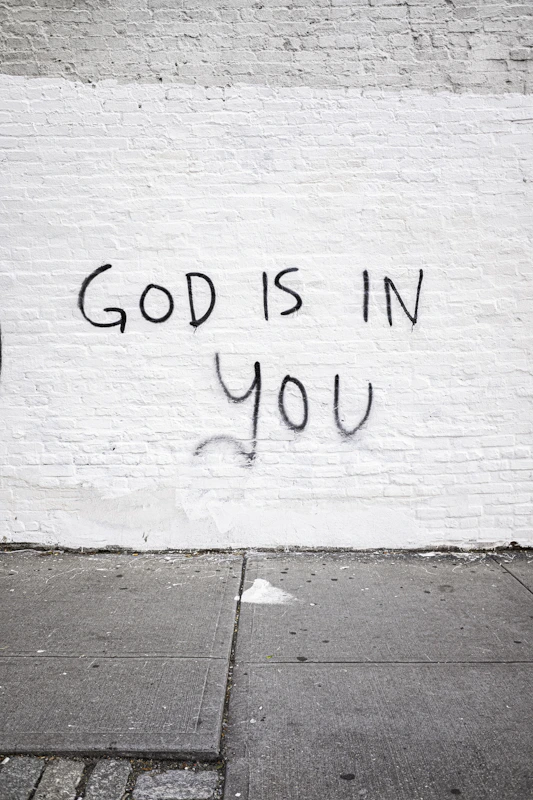 GOD IS IN
YOU